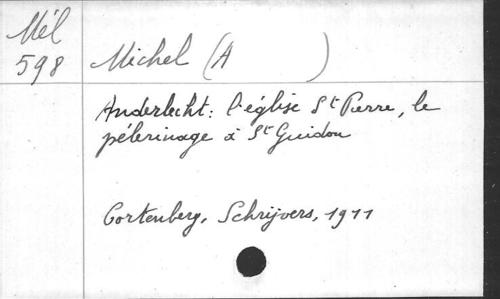 Mél
598
Michel (A )
Anderlecht: l'église St Pierre, le
pélerinage à St Guidon
Cortenberg, Schrijvers, 1911